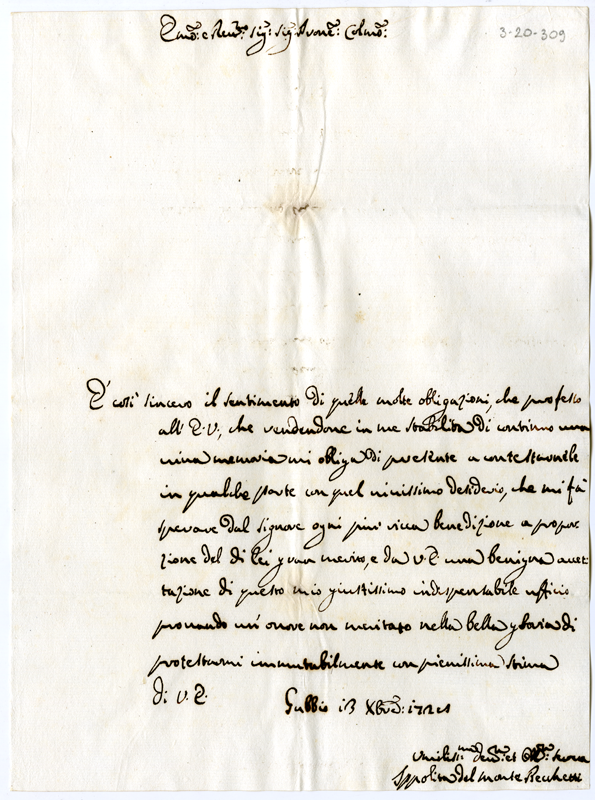 Emo: e Revmo: Sig: Sig: Prone: Colmo:
3-20-309
È così sincero il sentimento di quelle molte obligazioni, che professo
all' E.V., che rendendone in me stabilita di continuo una
viva memoria mi obliga di presente a contestarnele
in qualche parte con quel vivissimo desiderio, che mi fà
sperare dal Signore ogni più ricca benedizione a propor
zione del di Lei gran merito, e da V.E. una benigna accet
tazione di questo mio giustissimo indispensabile uffizio
provando un onore non meritato nella bella gloria di
protestarmi immutabilmente con pienissima stima
di V.E. Gubbio 13 Xbre: 1721
Umilissi Devma: et Obma: Serva
Ippolita del Monte